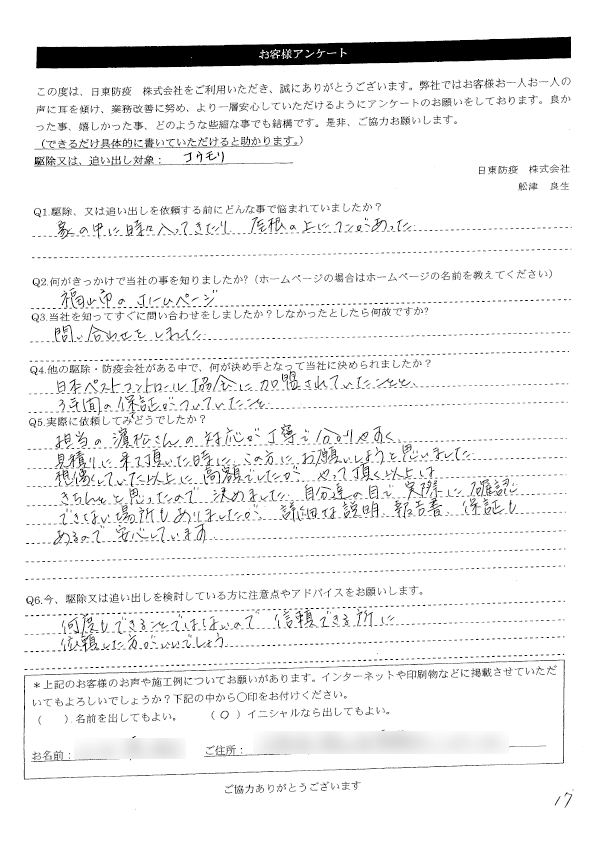 お客様アンケート
この度は、日東防疫　株式会社をご利用いただき、誠にありがとうございます。弊社ではお客様お一人お一人の
声に耳を傾け、業務改善に努め、より一層安心していただけるようにアンケートのお願いをしております。良か
った事、嬉しかった事、どのような些細な事でも結構です。是非、ご協力お願いします。
（できるだけ具体的に書いていただけると助かります。）
駆除又は、追い出し対象： コウモリ
日東防疫　株式会社
舩津　良生
Q1.駆除、又は追い出しを依頼する前にどんな事で悩まれていましたか？
家の中に時々入ってきたり 屋根の上にフンがあった
Q2.何がきっかけで当社の事を知りましたか?（ホームページの場合はホームページの名前を教えてください）
福山市のホームページ
Q3.当社を知ってすぐに問い合わせをしましたか？しなかったとしたら何故ですか?
問い合わせをしました
Q4.他の駆除・防疫会社がある中で、何が決め手となって当社に決められましたか？
日本ペストコントロール協会に加盟されていたことと、
3年間の保証がついていたこと
Q5.実際に依頼してみどうでしたか？
担当の濱松さんの対応が丁寧で分かりやすく、
見積りに来て頂いた時に、この方にお願いしようと思いました
想像していた以上に高額でしたが、やって頂く以上は
きちんとと思ったので 決めました 自分達の目で実際に確認
できない場所もありましたが、詳細な説明、報告書、保証も
あるので安心しています
Q6.今、駆除又は追い出しを検討している方に注意点やアドバイスをお願いします。
何度もできることではないので 信頼できる所に
依頼した方がいいでしょう
＊上記のお客様のお声や施工例についてお願いがあります。インターネットや印刷物などに掲載させていただ
いてもよろしいでしょうか？下記の中から〇印をお付けください。
（　　）名前を出してもよい。　（ 〇 ）イニシャルなら出してもよい。
お名前：　ご住所：
ご協力ありがとうございます
17